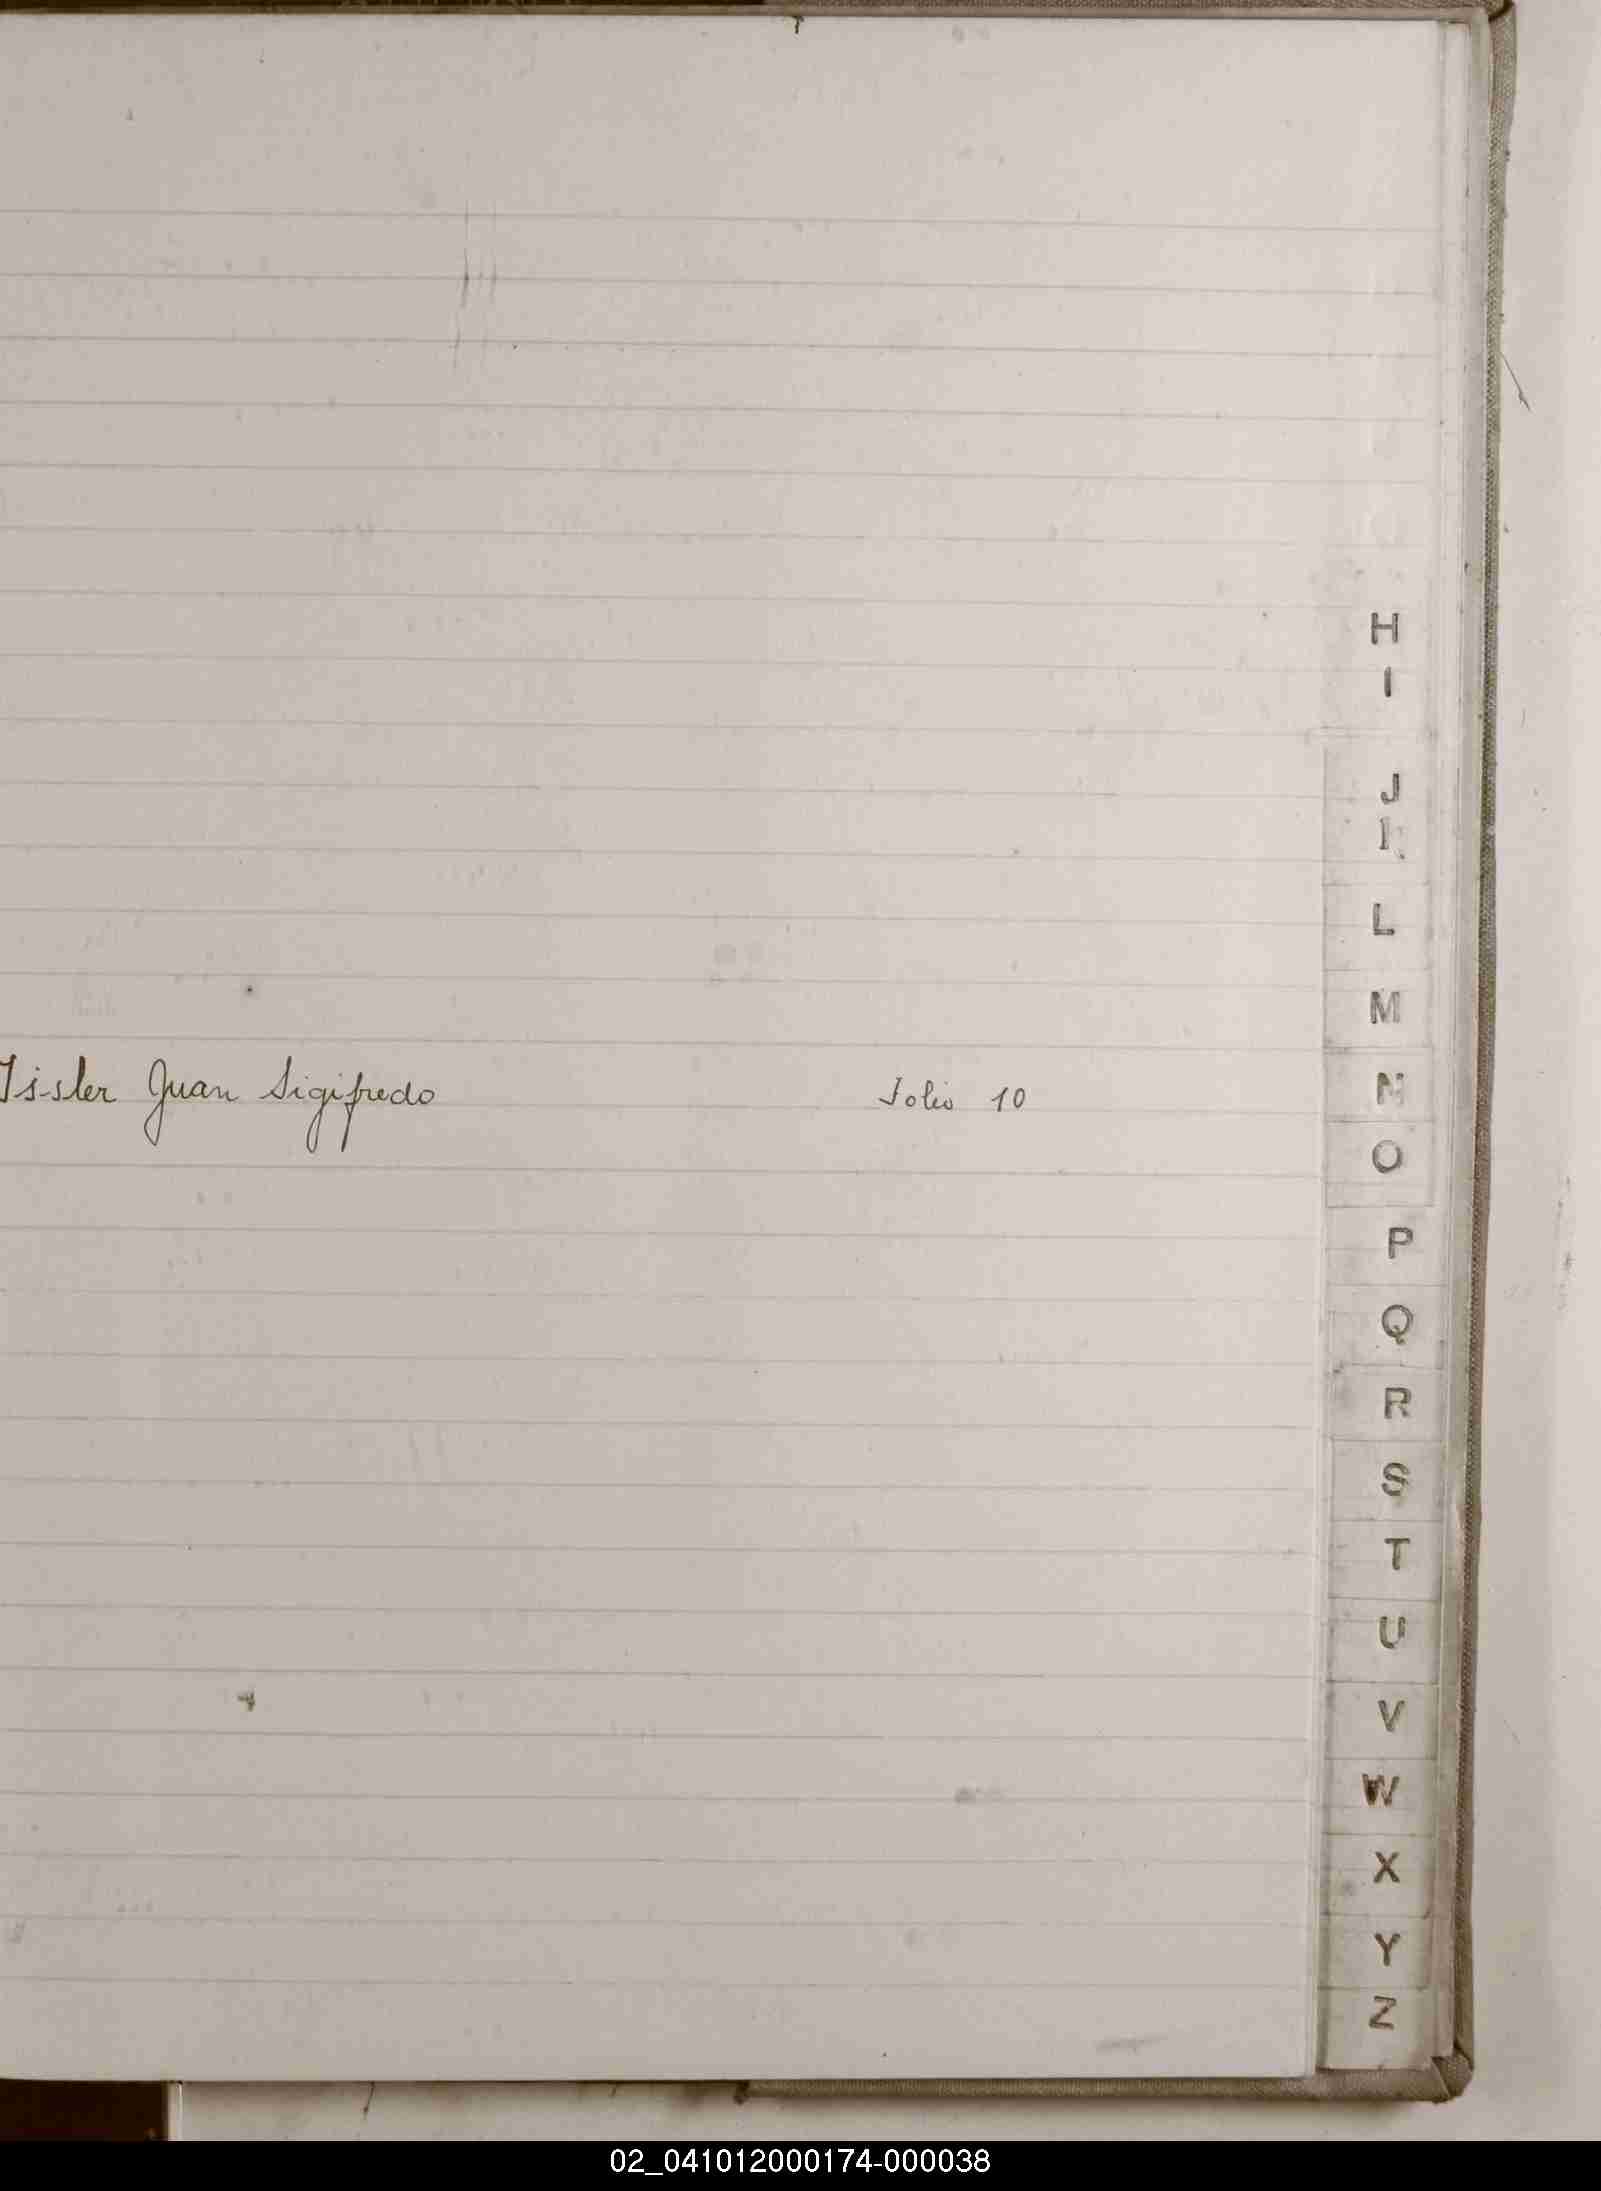 H
I
J
K
L
M
Issler Juan Sigifredo Folio 10
N
O
P
Q
R
S
T
U
V
W
X
Y
Z
02_041012000174-000038